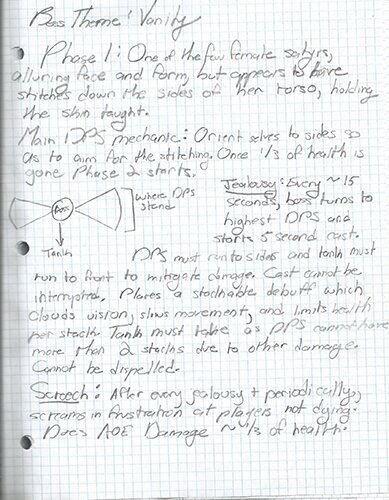 Boss Theme: Vanity
Phase 1: One of the few female satyrs,
alluring face and form, but appears to have
stitches down the sides of her torso, holding
the skin taught.
Main DPS mechanic: Orient selves to sides so
as to aim for the stitching. Once 1/3 of health is
gone Phase 2 starts.
Boss
Where DPS
stand
Tank
Jealousy: Every ~15
seconds, boss turns to
highest DPS and
starts 5 second cast.
DPS must run to sides and tank must
run to front to mitigate damage. Cast cannot be
interrupted. Places a stackable debuff which
clouds vision, slows movement, and limits health
per stack. Tank must take as DPS cannot have
more than 2 stacks due to other damage.
Cannot be dispelled.
Screech: After every jealousy + periodically,
screams in frustration at players not dying.
Does AOE Damage ~1/3 of health.